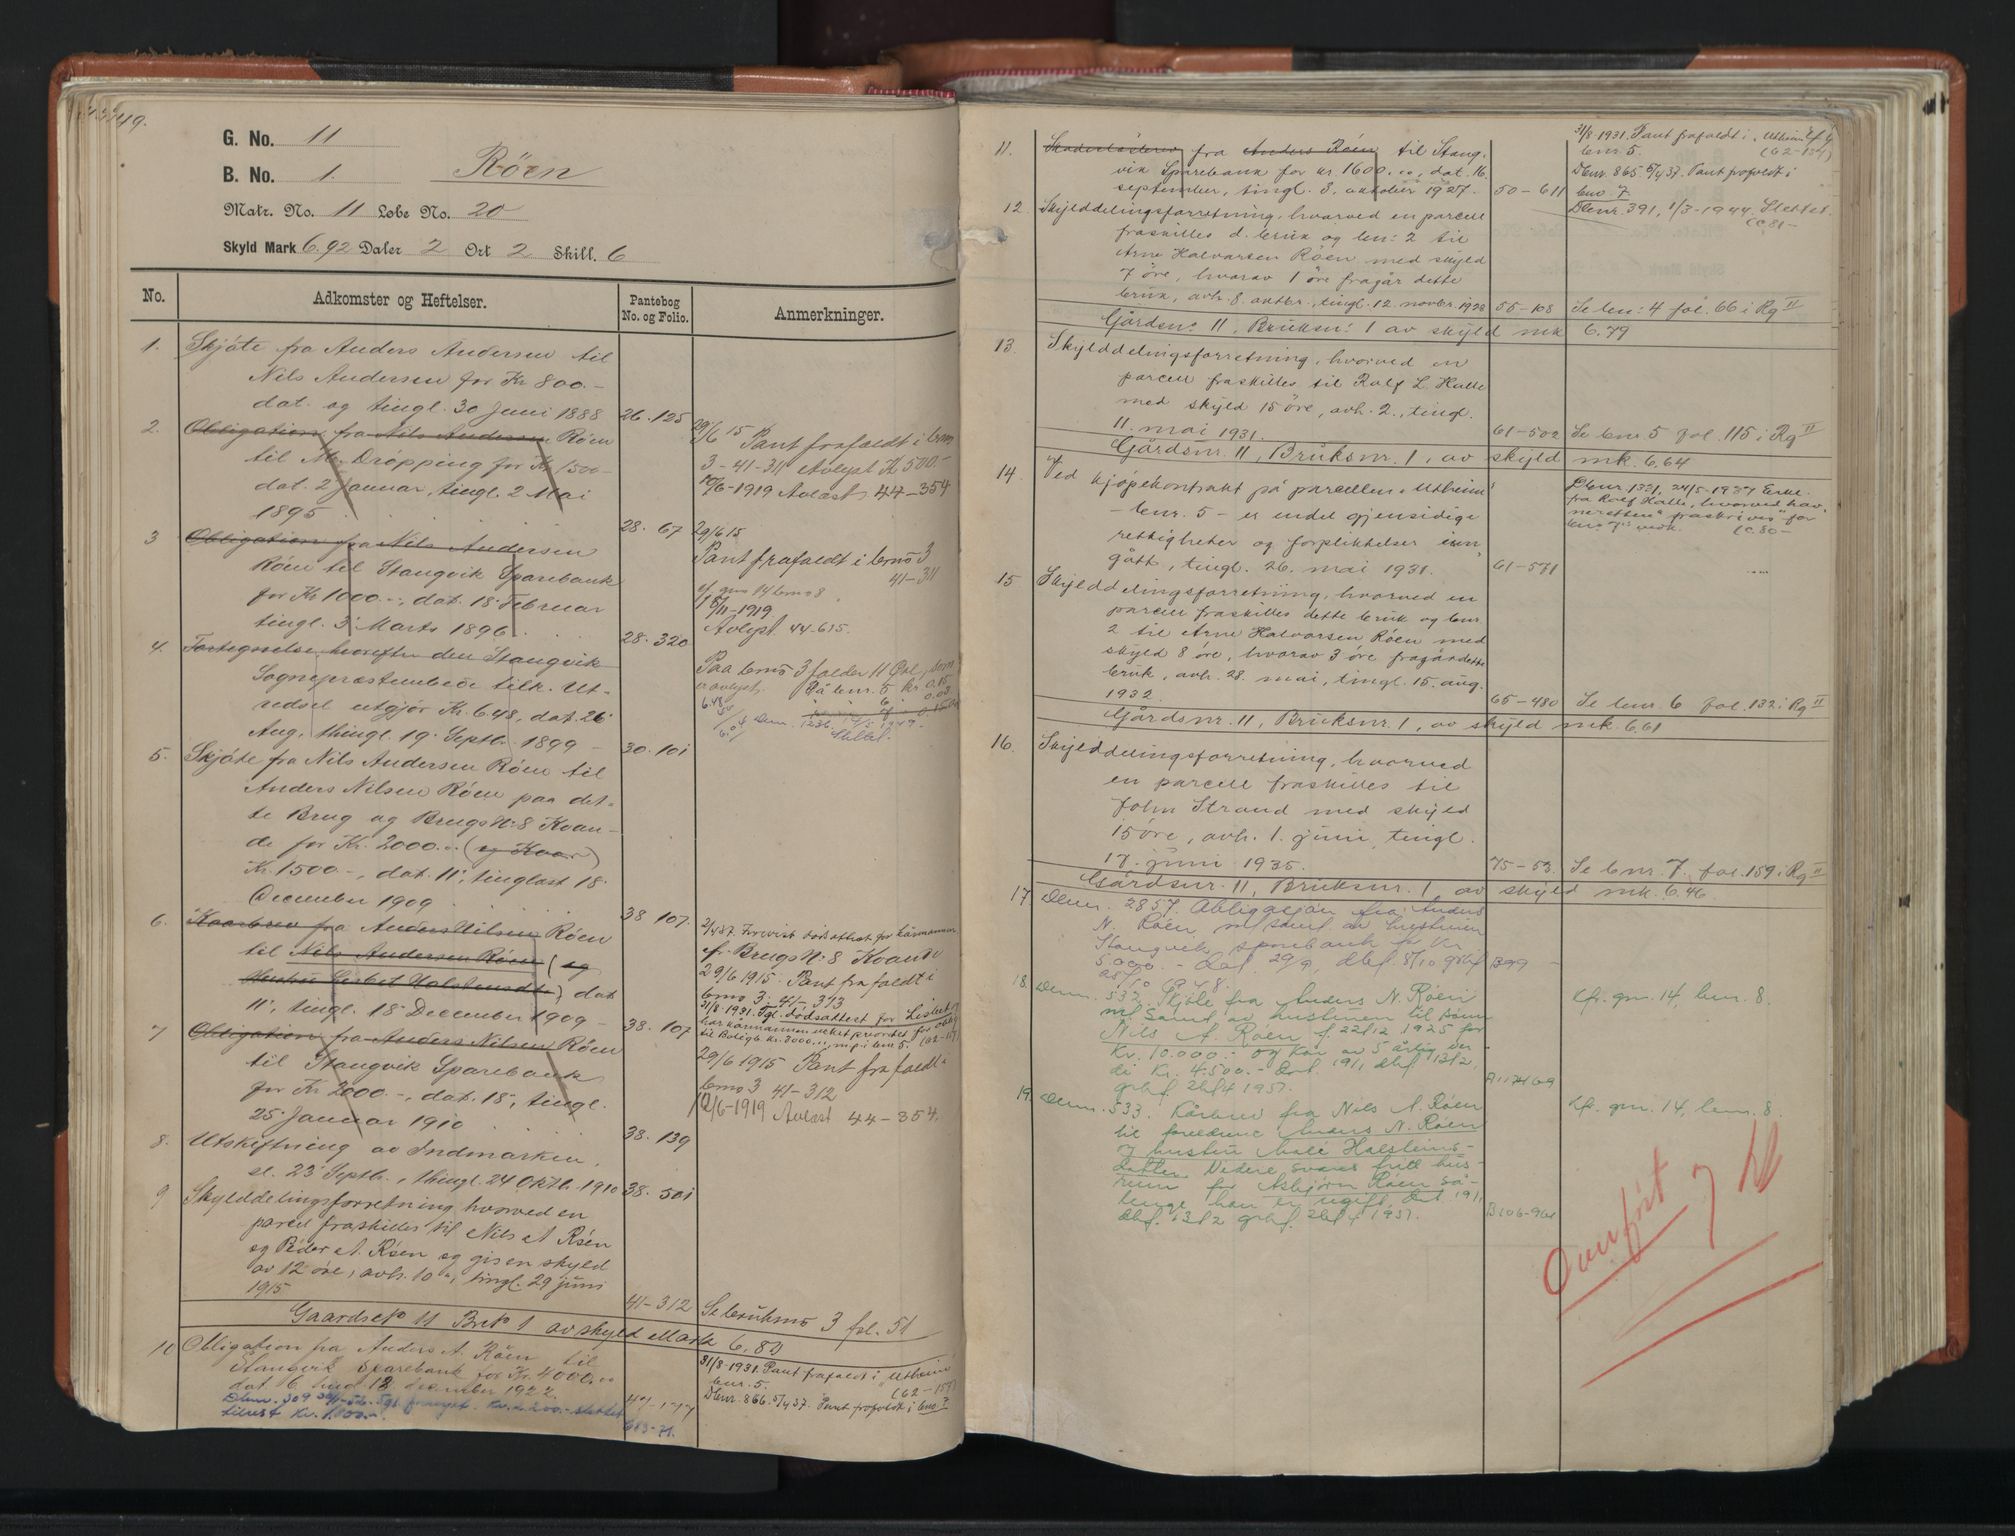 49.
G. No. 11
B. No. 1. Röen
Matr. No. 11 Løbe No. 20
Skyld Mark 6.92 Daler 2 Ort 2 Skill. 6
No.
Adkomster og Heftelser.
Pantebog
No. og Folio.
Anmerkninger.
1. Skjöte fra Anders Andersen til
Nils Andersen for Kr 800.-
dat. og tingl. 30 Juni 1888 26.125
2. Obligation fra Nils Andersen Röen
til M. Dröpping for Kr 1500-
dat. 2 Januar, tingl. 2 Mai
1895 28. 67
29/6 15 Pant frafaldt i brno
3-41-311 Avlyst K 500.-
10/6-1919 Avlæst 44-354
3 Obligation fra Nils Andersen
Röen til Stangvik Sparebank
for Kr 1000.-, dat. 18 Februar
tingl. 3 Marts 1896. 28. 320
29/6 15
Pant frafaldt i brno 3
41-311
cf. gno 14 brno 8
18/11-1919
Avlyst. 44-615.
4. Fortegnelse, hvorefter den Stangvik
Sognepræstembede tilk. Ut-
redsel utgjör Kr. 6.48, dat. 26
Aug, thingl. 19. Septb. 1899 - 30. 101
Paa brno 3 falder 11 Øre, som
er avlyst. På bnr. 5 kr. 0.15
Slettet.
5. Skjöte fra Nils Andersen Röen til
Anders Nilsen Röen paa det-
te Brug og Brugs N: 8 Kvan-
de for Kr. 2000.- (og Kaar)
Kr. 1500-, dat. 11, tinglæst 18
December 1909 38. 107.
6. Kaarbrev fra Anders Nilsen Röen
til Nils Andersen Röen (og
Hustru Lisbet Halstensdtr) dat
11, tingl. 18 December 1909 - 38. 107
2/4 37. Forevist dödsattest for kårmannen
cf. Brugs N: 8 Kvande
29/6 1915. Pant frafaldt i
brno 3. 41-313
31/8 1931. Tgl. dödsattest for Lisbet,
har kårmannen veket prioritet for oblig.
til Boligb. kr. 3000.-, m.p. i bnr. 5. (62-157)
7 Obligation fra Anders Nilsen Röen
til Stangvik Sparebank
for Kr 2000.-, dat. 18, tingl.
25 Januar 1910 38. 139
29/6 1915 Pant frafaldt i
brno 3 41-312
10/6-1919 Avlæst 44-354.
8. Utskiftning av Indmarken,
sl. 23 Septb., thingl. 24 Oktb. 1910 38. 501
9 Skylddelingsforretning hvorved en
parcel fraskilles til Nils A Röen
og Peder A. Röen og gis en skyld
av 12 öre, avh. 10 , tingl. 29 juni
1915 41-312 Se bruksno 3 fol. 51
Gaardsno 11 Brno 1 av skyld Mark 6,80
10 Obligation fra Anders A. Röen til
Stangvik Sparebank for Kr. 4000.00
dat 6, tingl 13. december 1922.
Dbnr. 309 Tgl. fraveget. Kr. 2200.- slettet
tilrest Kr. 1800.-.
31/8-1931. Pant frafaldt i "Utheim"
bnr. 5. (62-157)
Dbnr. 866. 5/4 37. Pant frafaldt i bno 7
11. Skadesløsbrev fra Anders Röen til Stang-
vik Sparebank for kr. 1600.00, dat. 16.
september, tingl. 3. oktober 1927. 50-611
31/8 1931. Pant frafaldt i "Utheim"
bnr. 5. (62-157)
Dbnr. 865 5/4 37. Pant frafaldt i
bno 7
Dbnr. 391, 1/3-1944. Slettet.
12. Skylddelingsforretning, hvorved en parcell
fraskilles d. bruk og bnr: 2 til
Arne Halvorsen Röen med skyld
7 öre, hvorav 1 öre fragår dette
bruk, avh. 8. oktbr., tingl. 12. novbr. 1928 55-108 Se bnr: 4 fol. 66 i Rg II
Gårdsnr: 11, Bruksnr: 1 av skyld mk 6.79
13. Skylddelingsforretning, hvorved en
parcell fraskilles til Rolf L. Halle
med skyld 15 öre, avh. 2., tingl.
11. mai 1931. 61-502 Se bnr. 5 fol. 115 i Rg II
Gårdsnr. 11, Bruksnr. 1, av skyld mk. 6,64
14. Ved kjöpekontrakt på parcellen "Utheim"
- bnr. 5 - er endel gjensidige
rettigheter og forpliktelser inn-
gått, tingl. 26. mai 1931. 61-571
Dbnr. 1331, 24/5-1937 Erkl.
fra Rolf Halle, hvorved hav-
neretten "fraskrives" for
bno "7" vedk.
15 Skylddelingsforretning, hvorved en
parcell fraskilles dette bruk og bnr.
2 til Arne Halvorsen Röen med
skyld 8 öre, hvorav 3 öre fragår dette
bruk, avh. 28. mai, tingl. 15. aug.
1932. 65-480 Se bnr. 6 fol. 132 i Rg II
Gårdsnr. 11, Bruksnr. 1, av skyld mk. 6,61
16. Skylddelingsforretning, hvorved
en parcell fraskilles til
John Strand med skyld
15 öre, avh. 1. juni, tingl.
17. juni 1935. 75-53. Se bnr. 7. fol. 159 i Rg II
Gårdsnr. 11, Bruksnr. 1, av skyld mk. 6.46
17. Dbnr. 2857. Obligasjon fra Anders
N. Röen m/saml. av hustruen til
Stangvik sparebank for kr
5.000.- Dat. 29/9, dbf. 8/10 grbf
18. Dbnr. 532. Skjöte fra Anders N. Röen
m/ saml av hustruen til sönn
Nils A. Röen f. 22/12 1925 for
Kr. 10.000.- og kår av 5 årlig ver-
di kr. 4.500.- Dat. 19/1, dbf. 13/2,
grbf. 1957.
kfr. gnr. 14, bnr. 8.
19. Dbnr. 533. Kårbrev fra Nils A. Röen
til foreldrene Anders N. Röen
og hustru Malé Halsteins-
datter. Videre svares fritt hus-
rum for Asbjörn Röen så-
lenge han er ugift. Dat. 19/1,
dbf. 13/2 grbf. 1957.
kfr. gnr. 14, bnr. 8.
Overfört